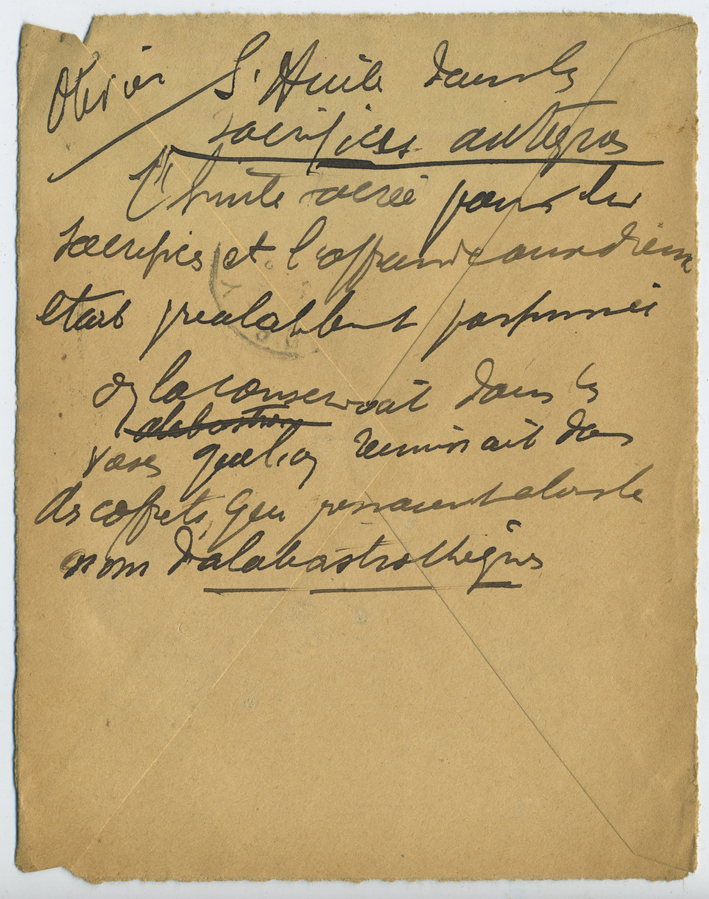 Olivier L'Huile dans les
sacrifices antiques
L'huile sacrée pour les
sacrifices et l'offrande aux dieux
etait prealablement parfumée
on la conservait dans les
alabastres
vases que l'on reunissait dans
des coffrets, qui prenaient alors le
nom d'alabastrothèques